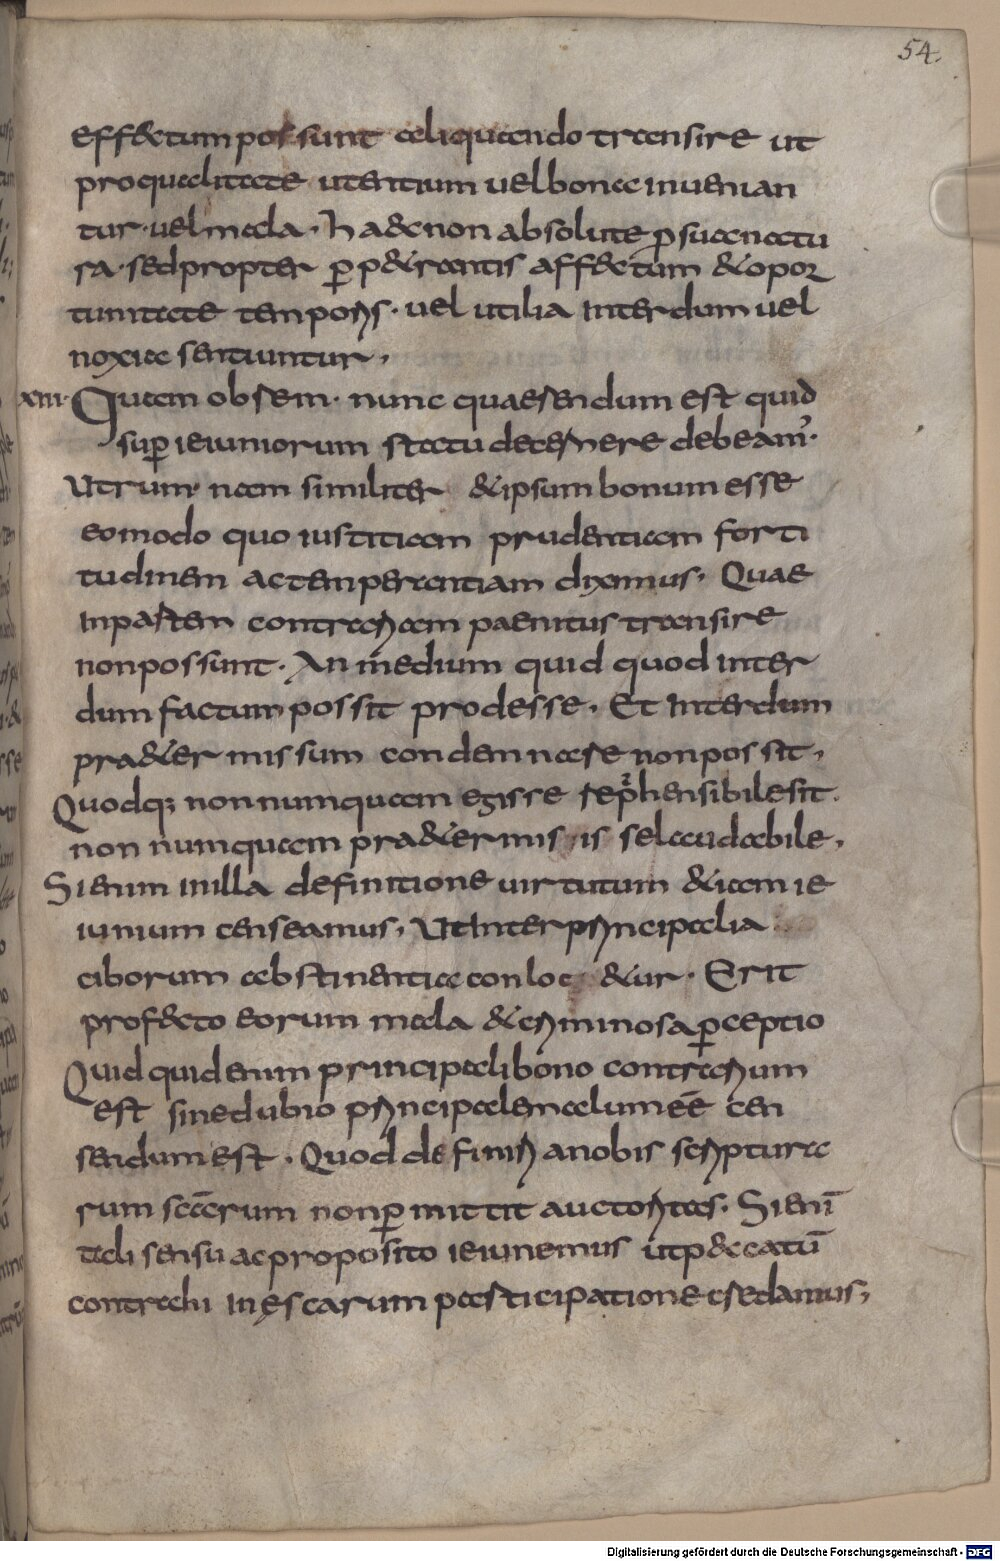 54.
effectum possunt aliquando transire ut
proqualitate utentium uel bona inuenian
tur· uel mala· haec non absolute p sua natu
ra· sed propter p petrantis affectum & opor
tunitate temporis· uel utilia interdum uel
noxia sentiuntur,
xiiii· Quam obrem· nunc quaesendum est quid
sup ieiuniorum statu decernere debeam'·
Utrum nam similiter & ipsum bonum esse
eo modo quo iustitiam prudentiam forti
tudinem ac temperantiam diximus, Quae
inpartem contrariam paenitus transire
non possunt· An medium quid quod inter
dum factum possit prodesse, Et interdum
praetermissum condemnase non possit,
Quodq; non numquam egisse reprehensibile sit.
non numquam praetermis is se laudabile,
Si enim in illa definitione uirtutum etiam ie
iunium censeamus, Ut inter principalia
ciborum abstinentia conloc &ur· Erit
profecto eorum mala & criminosa pceptio
Quidquid enim principali bono contrarium
est sine dubio principale malum eē cen
sendum est. Quod definiri a nobis scriptura
rum sācrum non pmittit auctoritas· Si enī
tali sensu ac proposito ieiunemus ut peccatū
contrahi in escarum pasticipatione csedamus,
Digitalisierung gefördert durch die Deutsche Forschungsgemeinschaft - DFG